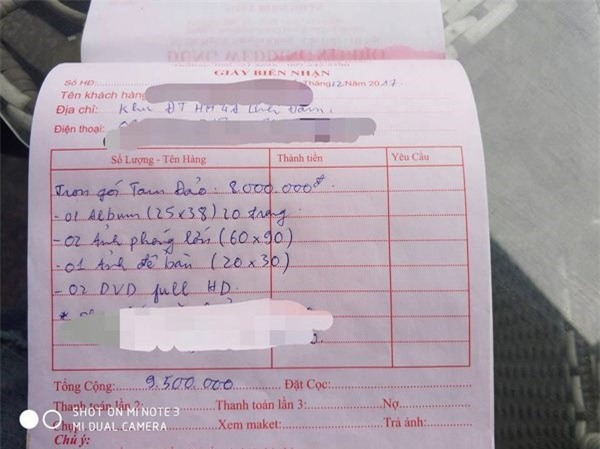 DUNG WEDDING STUDIO
GIẤY BIÊN NHẬN
Số HĐ: Tháng 12 Năm 2017
Tên khách hàng
Địa chỉ: Khu ĐT HH4A Linh Đàm
Điện thoại:
Số Lượng - Tên Hàng Thành tiền Yêu Cầu
Trọn gói Tam Đảo: 8.000.000đ
- 01 Album (25x38) 20 trang
- 02 Ảnh phóng lớn (60x90)
- 01 Ảnh để bàn (20x30)
- 02 DVD full HD.
*
Tổng Cộng: 9.500.000 Đặt Cọc:
Thanh toán lần 2: Thanh toán lần 3: Nợ
Chụp Xem maket: Trả ảnh:
Chú ý:
SHOT ON MI NOTE 3
MI DUAL CAMERA